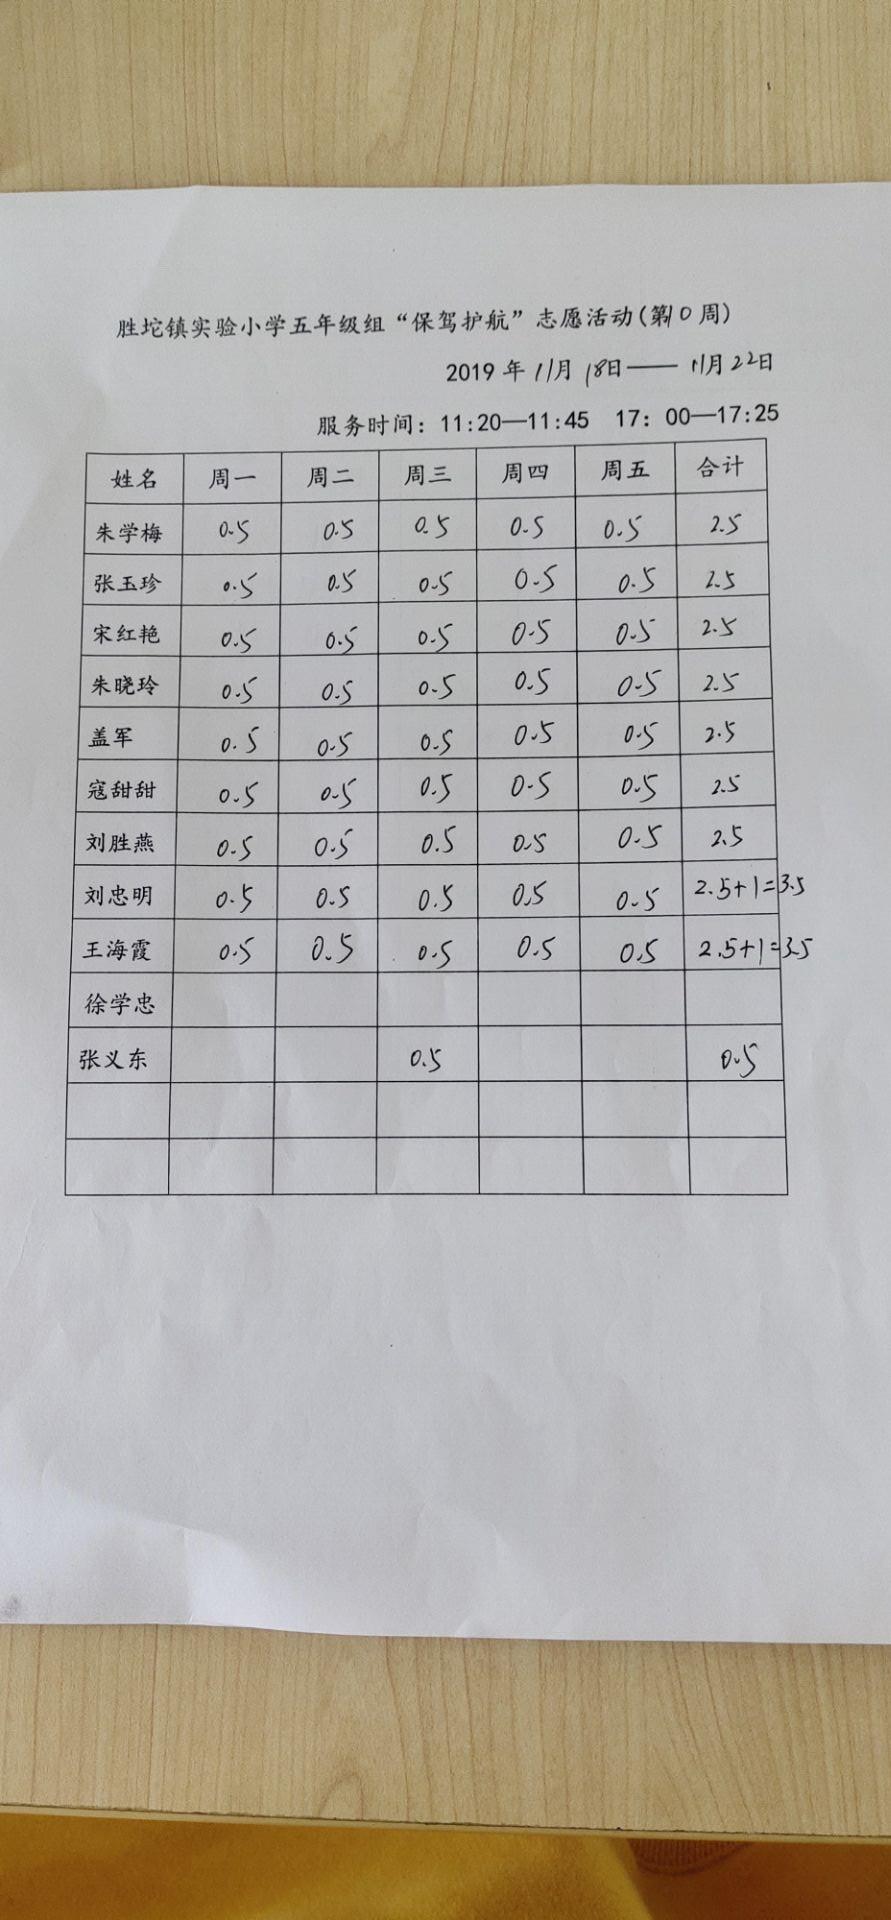 胜坨镇实验小学五年级组“保驾护航”志愿活动(第10周)
2019年11月18日——11月22日
服务时间：11:20—11:45 17：00—17:25
姓名 周一 周二 周三 周四 周五 合计
朱学梅 0.5 0.5 0.5 0.5 0.5 2.5
张玉珍 0.5 0.5 0.5 0.5 0.5 2.5
宋红艳 0.5 0.5 0.5 0.5 0.5 2.5
朱晓玲 0.5 0.5 0.5 0.5 0.5 2.5
盖军 0.5 0.5 0.5 0.5 0.5 2.5
寇甜甜 0.5 0.5 0.5 0.5 0.5 2.5
刘胜燕 0.5 0.5 0.5 0.5 0.5 2.5
刘忠明 0.5 0.5 0.5 0.5 0.5 2.5+1=3.5
王海霞 0.5 0.5 0.5 0.5 0.5 2.5+1=3.5
徐学忠
张义东 0.5 0.5